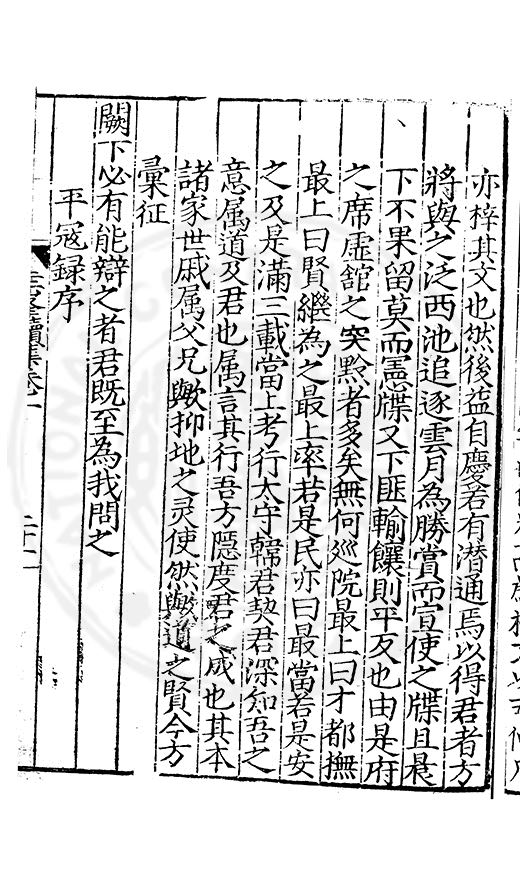 亦梓其文也然後益自慶若有潜通焉以得君者方
將與之泛西池追逐雲月為勝賞而宣使之牒且晨
下不果留莫而憲牒又下匪輸饟則平反也由是府
之席虛舘之突黔者多矣無何廵院最上曰才都撫
最上曰賢繼為之最上率若是民亦曰最當若是安
之及是滿三載當上考行太守韓君契君深知吾之
意属道及君也属言其行吾方隱度君之成也其本
諸家世戚属父兄歟抑地之灵使然歟道之賢今方
彚征
闕下必有能辯之者君既至為我問之
平冦録序